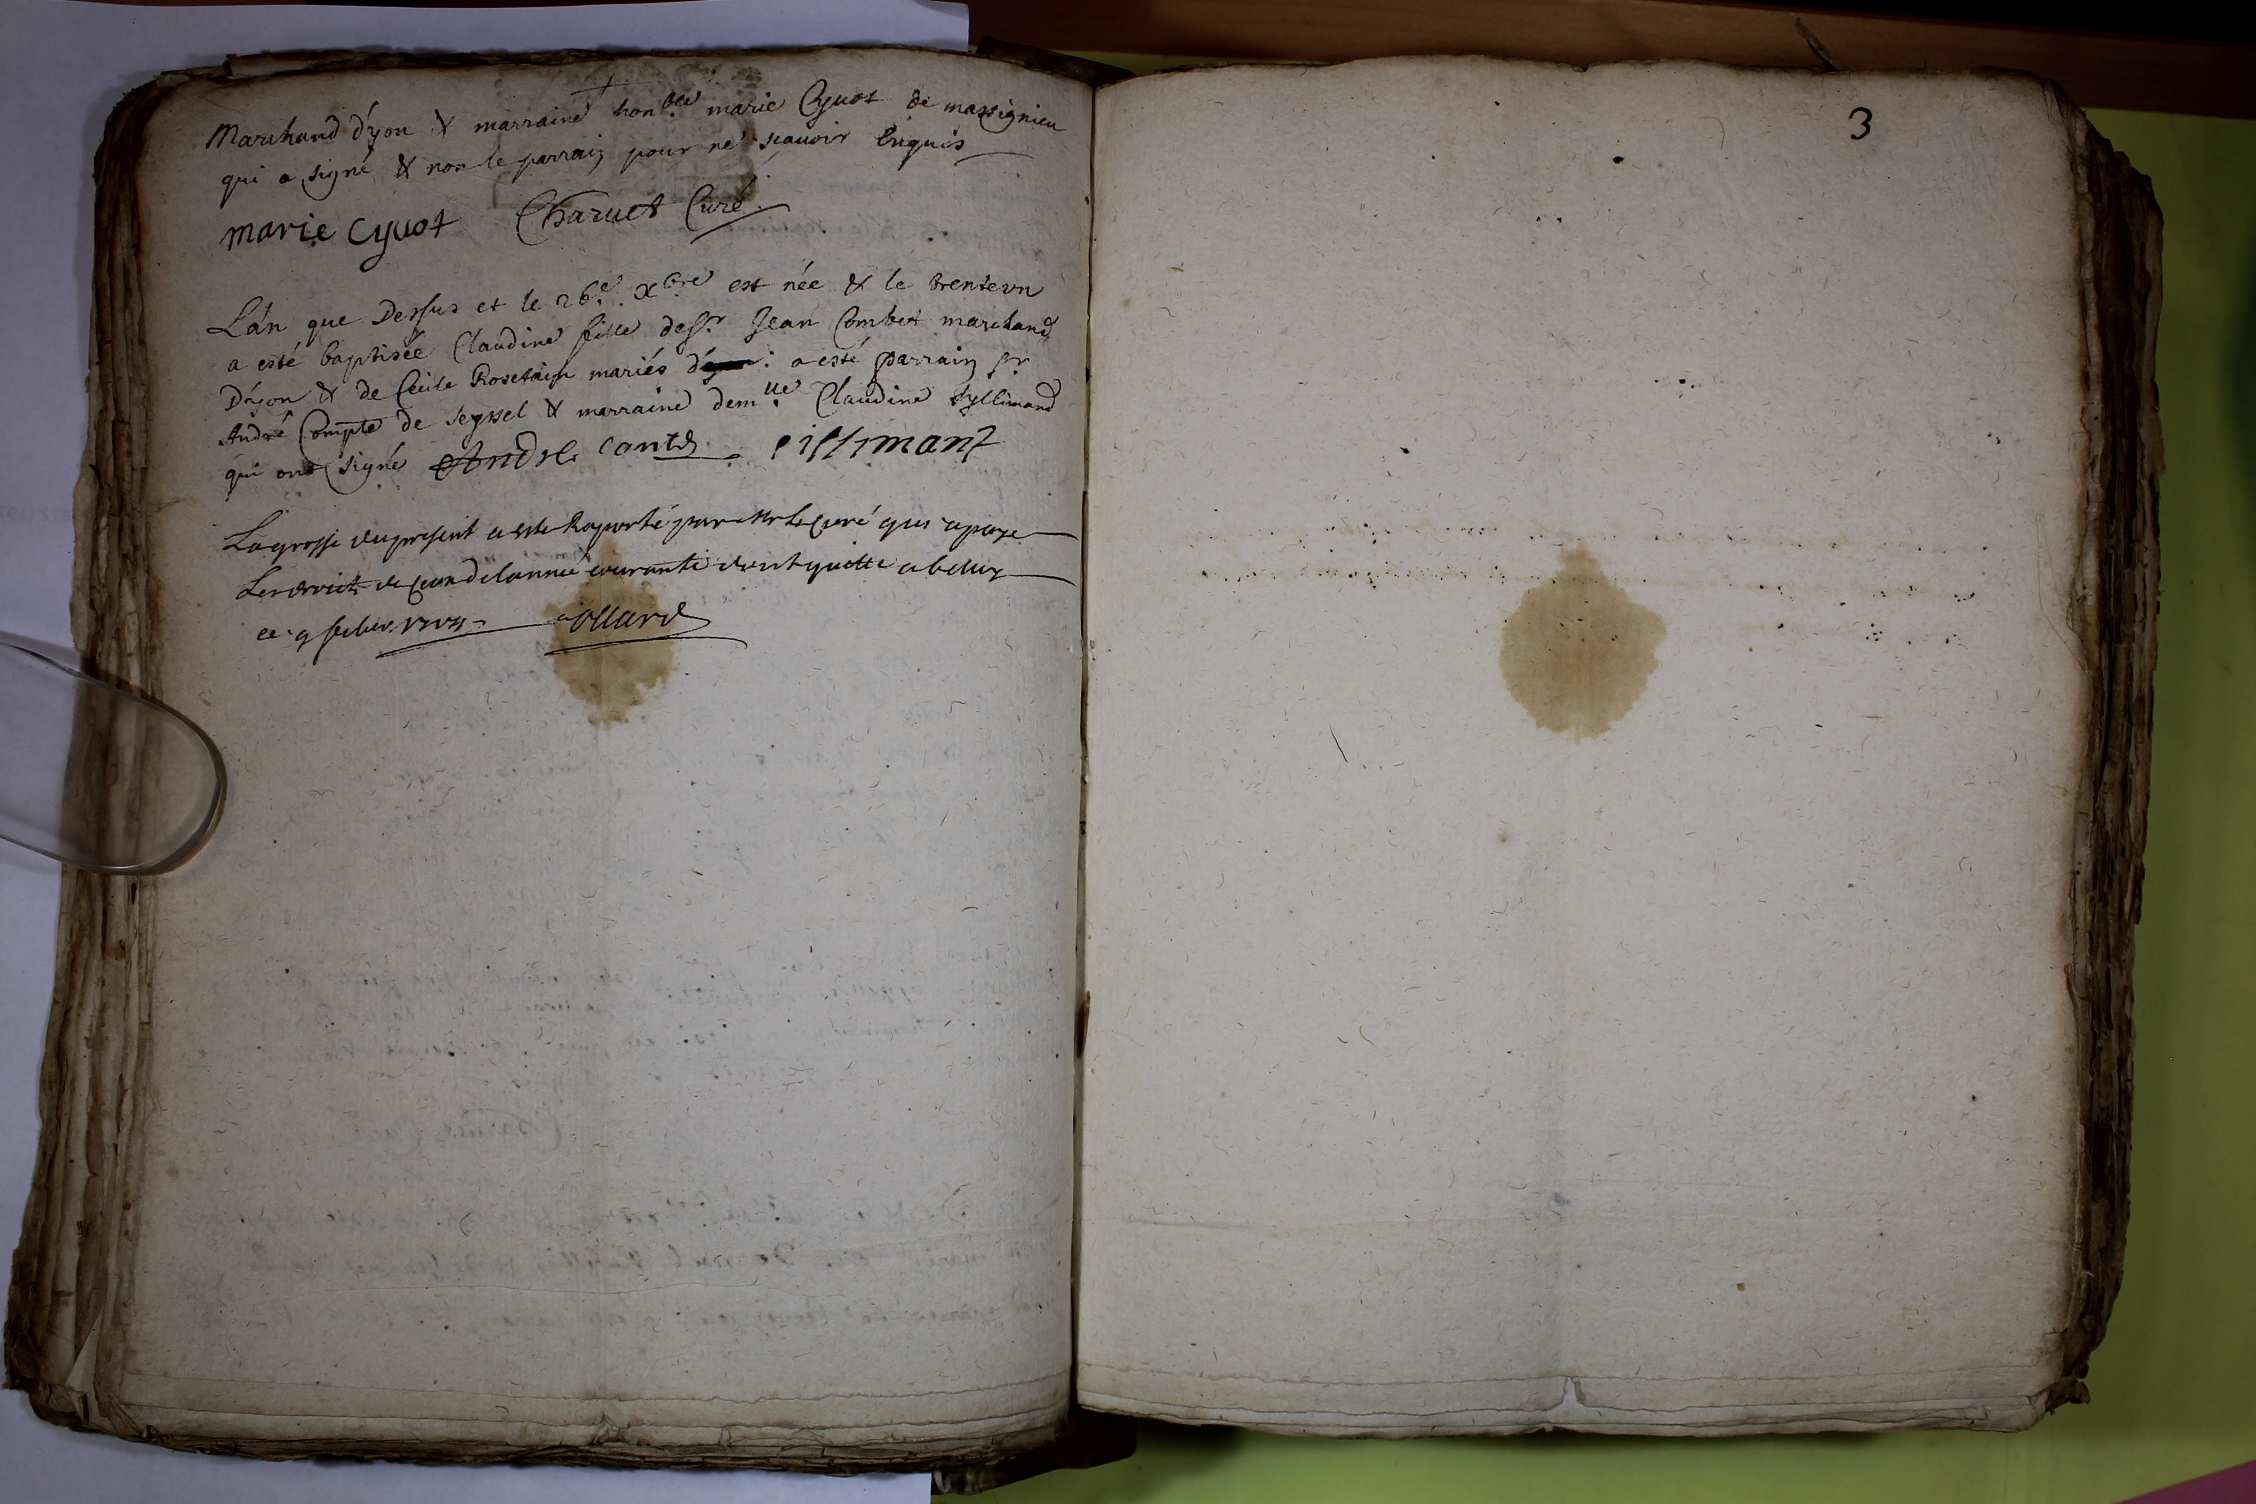 Marchand d'yon & marraine hon.ble marie Cyuot de massignieu
qui a signé & non le parrain pour ne scauoir Enquis
marie Cyuot Charuet Curé
L'an que Dessus et le 26.e Xbre est née & le trente vn
a esté baptisée Claudine fille de sr. Jean Combet marchand
D'yon & de Cécile Rosetain mariés a esté parrain sr
André Compte de seyssel & marraine dem.lle Claudine
qui ont signé André Conte
La grosse du present a este Raporté par Mr le Curé qui a paye
Les droict de lannée courante dont quitte a belley
ce 9 febur.
3